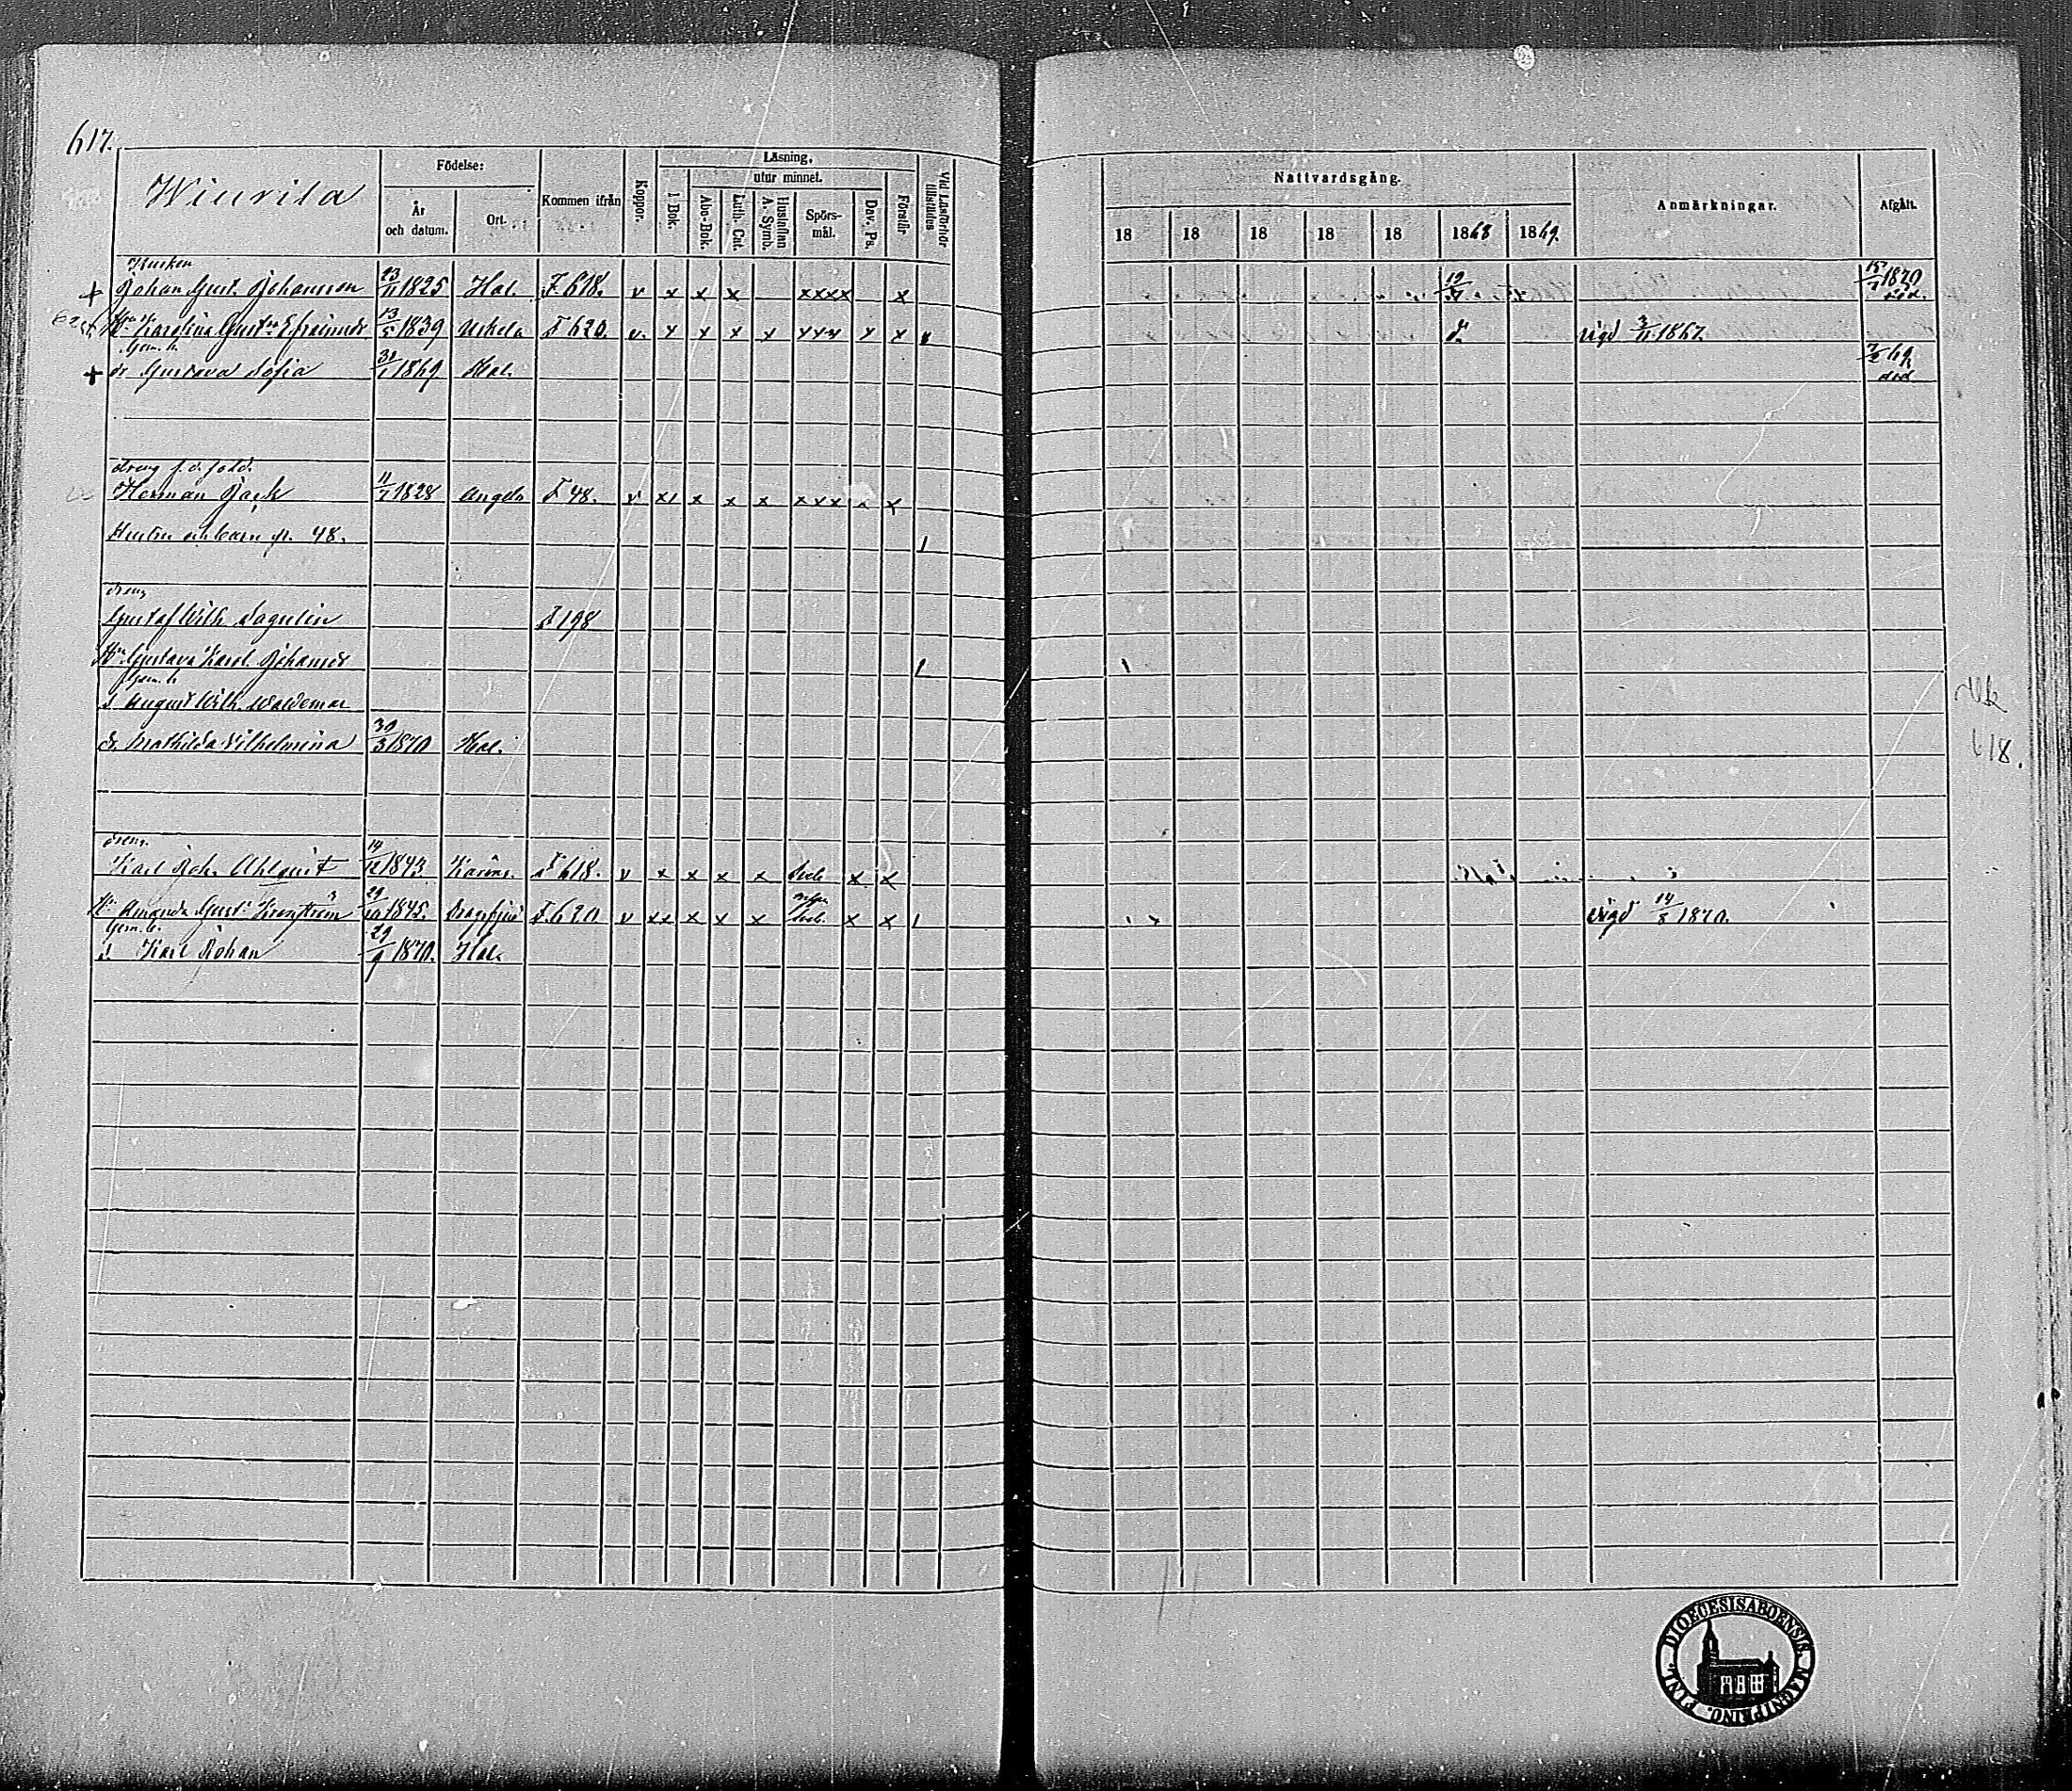 617.
Winrila
Födelse:
År och datum.
Ort.
Kommen ifrån
Koppor.
Läsning.
utur minnet.
I Bok.
Abc-Bok.
Luth. Cat.
Hustaflan A. Symb.
Spörs-mål.
Dav. Ps.
Förstår
Vid Läsförhör tillstädes
Nattvardsgång.
18 18 18 18 18 1868 1869.
Anmärkningar.
Afgått.
Johan Gust. Johansson 23/11 1825 Hal. F 618. v x x x xxxx x 15/1 1870 död.
Hu Karolina Gust:a Efraimsdr 13/5 1839 Uskela F 620. v. x x x x xxx x x d:o vigd 3/11 1867.
Gem. b.
dr Gustava Sofia 31/1 1869 Hal. 7/2 69 död
dreng f.d. sold.
Herman Jack 11/7 1828 Angeln F 48. v xx x x x xxx x
Hustru och barn fr. 48.
dreng
Gustaf Wilh. Sagulin F 198
Hu Gustava Karol. Johansdr
Gem. b.
s August Wilh. Waldemar
dr Mathilda Vilhelmina 30/3 1870 Hal.
618.
dreng
Karl Joh. Ahlqvist 14/12 1843 F 618. v x x x x x x
Hu Amanda Gust. 29/10 1845. Dragsfjärd F. 620 v xx x x x x x vigd 14/8 1870.
Gem. b.
s Karl Johan 29/9 1870. Hal.
DIOECESIS ABOENSIS MAGNI PRINC. FINL.